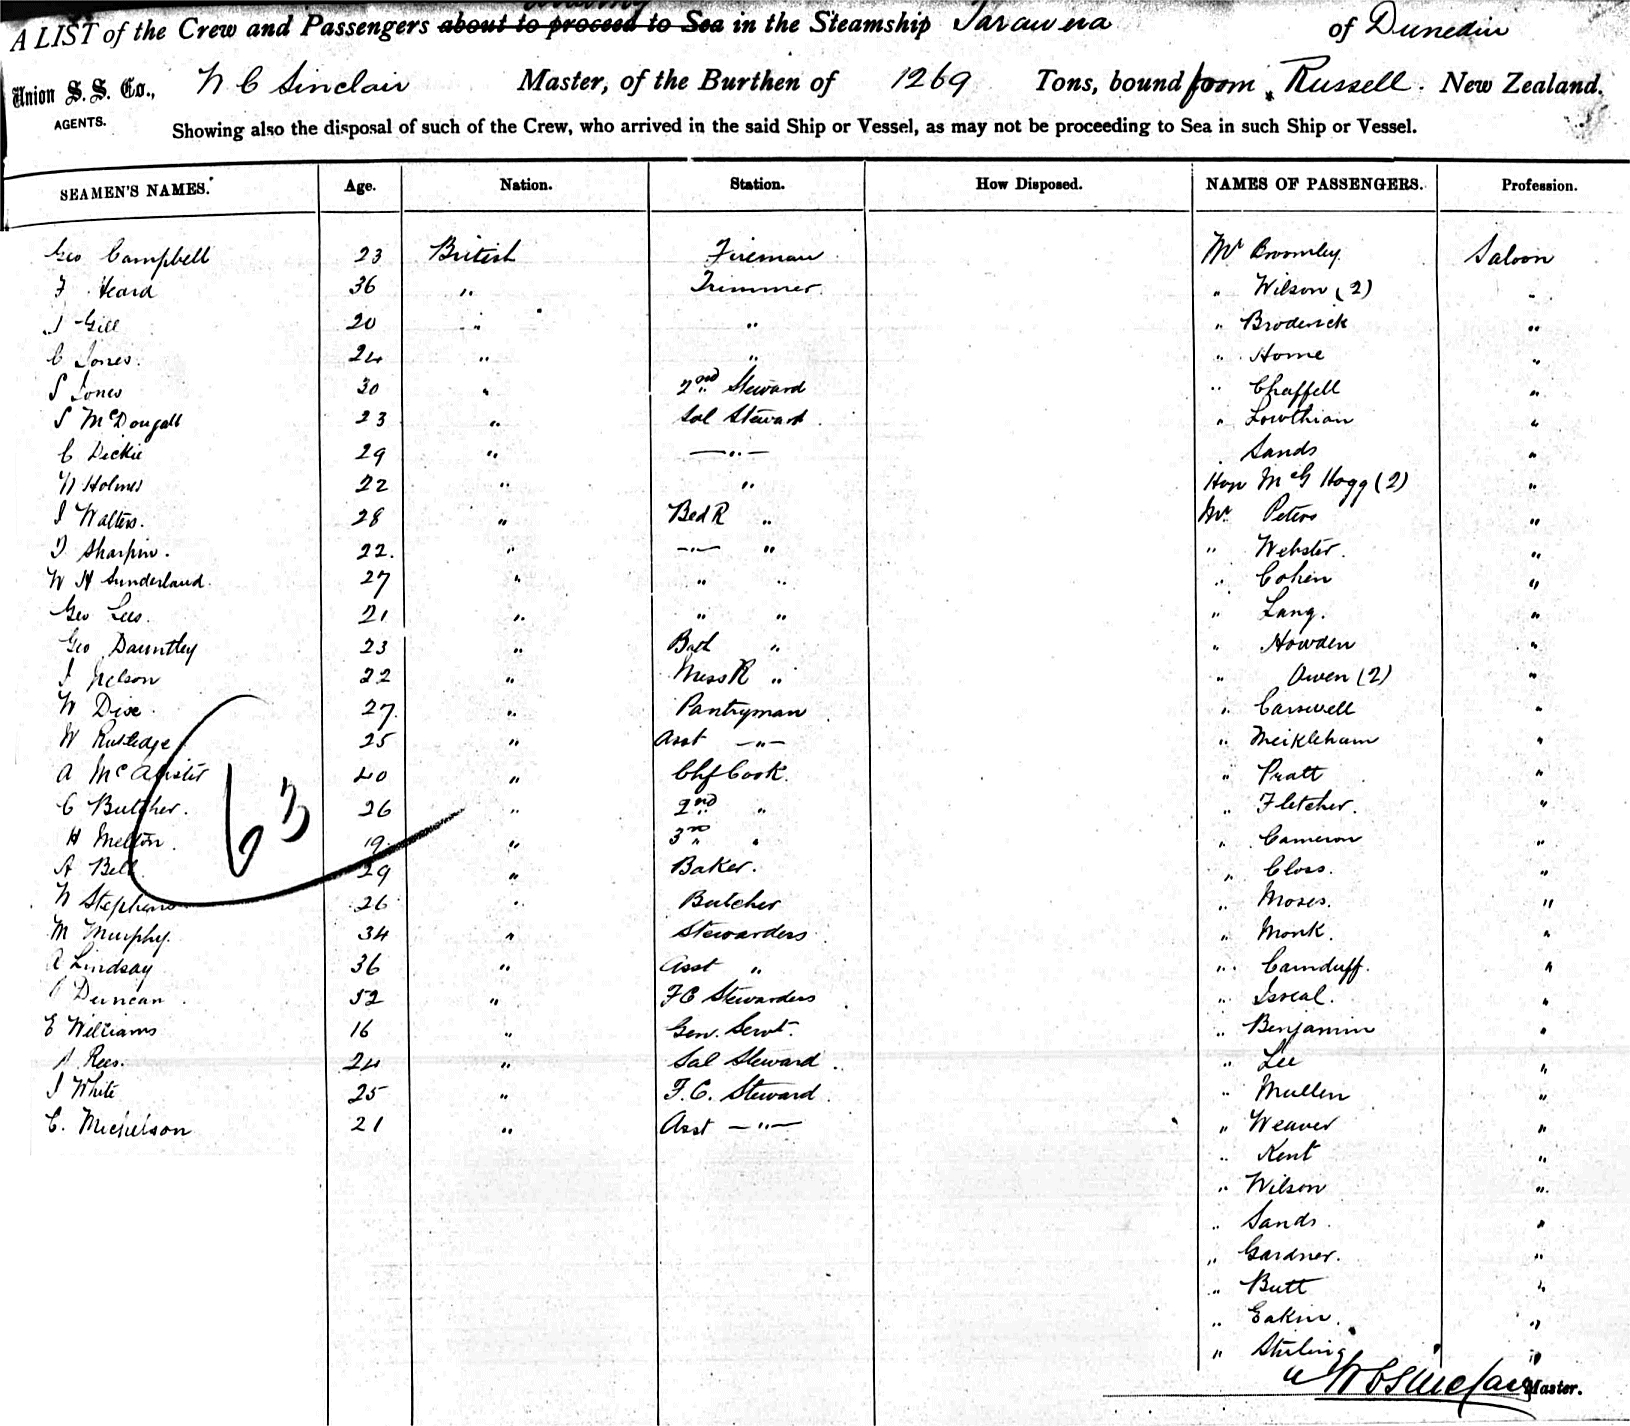 A LIST of the Crew and Passengers about to proceed to Sea in the Steamship Tarawera of Dunedin
Union S. S. Co., AGENTS. W C Sinclair Master, of the Burthen of 1269 Tons, bound from Russell. New Zealand.
Showing also the disposal of such of the Crew, who arrived in the said Ship or Vessel, as may not be proceeding to Sea in such Ship or Vessel.
SEAMEN'S NAMES. Age. Nation. Station. How Disposed. NAMES OF PASSENGERS. Profession.
Geo Campbell 23 British Fireman Mr Bromley Saloon
F Heard 36 " Trimmer " Wilson (2) "
J Gill 20 " " " Broderick "
C Jones. 24 " " " Home "
S Jones 30 " 2nd Steward " Chaffell "
S McDougall 23 " Sal Steward " Lowthian "
C Dickie 29 " —"— " Sands "
W Holmes 22 " " Hon McG Hogg (2) "
J Walters. 28 " Bed R " Mr Peters "
J Sharpin. 22. " —"— " " Webster. "
W H Sunderland. 27 " " " " Cohen "
Geo Lees. 21 " " " " Lang. "
Geo Dauntley 23 " Bath " " Howden "
J Nelson 22 " Mess R " " Owen (2) "
W Dixe. 27. " Pantryman " Carswell "
W Rutledge 25 " Asst —"— " Meikleham "
A McAlister 40 " Chf Cook. " Pratt "
C Butcher. 26 " 2nd " " Fletcher. "
H Melton. 19. " 3rd " " Cameron "
A Bell. 29 " Baker. " Closs. "
W Stephens 26 " Butcher " Moses. "
M Murphy. 34 " Stewardess " Monk. "
A Lindsay 36 " Asst " " Carnduff. "
Duncan 52 " F C Stewardess " Isreal. "
E Williams 16 " Gen. Servt. " Benjamin "
A Rees. 24 " Sal Steward " Lee "
J White 25 " F. C. Steward " Mullen "
C. Michelson 21 " Asst —"— " Weaver "
" Kent "
" Wilson "
" Sands. "
" Gardner. "
" Butt "
" Eakin. "
" Stirling "
63
W C Sinclair Master.